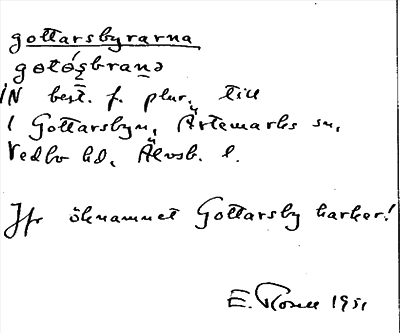 gottarsbyrarna
gøtóʂbraṉə
IN best. f. plur. till
1 Gottarsbyn, Ärtemarks sn,
Vedbo hd, Älvsb. l.
Jfr öknamnet Gottarsby harkar!
E. Rosell 1951